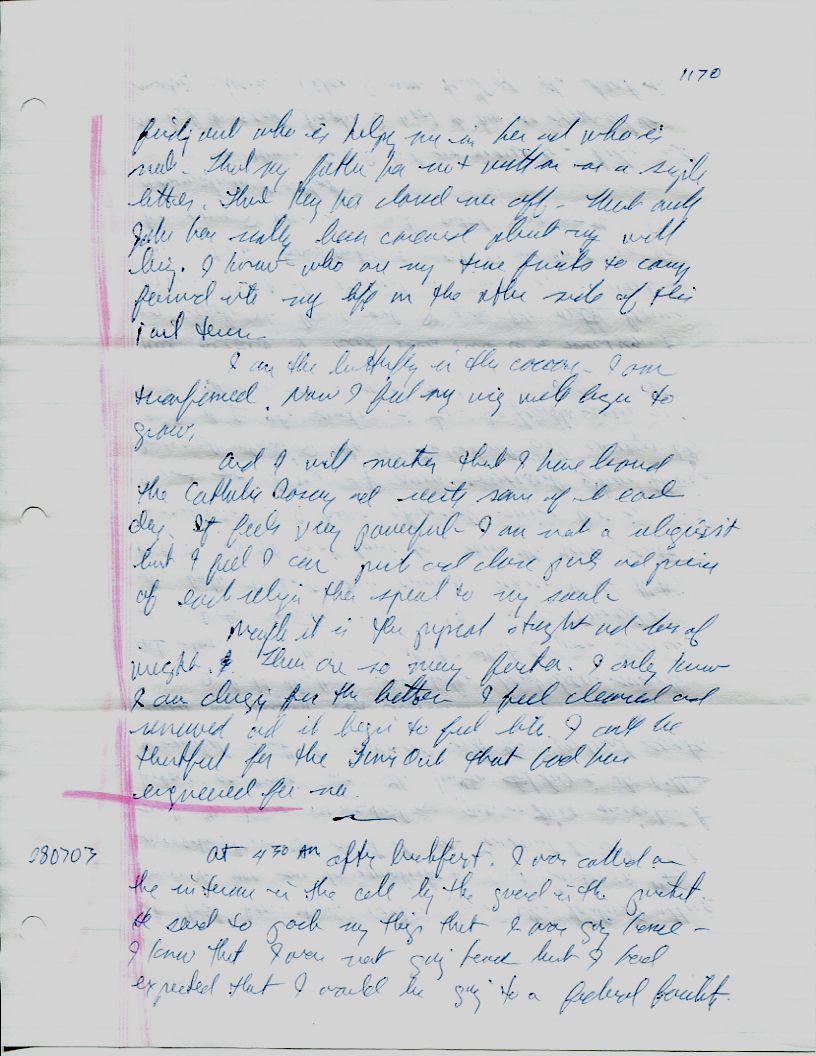 1170
who is helping me in here and who is
not. That my father has not written me a single
letter. That they has closed me off - that only
has really been concerned about my well
being. I know who are my true friends to carry
forward into my life on the other side of this
jail term.
I am the butterfly in the cocoon - I am
transformed. Now I feel my wings will begin to
grow.
And I will mention that I have learned
the Catholic Rosary and recite some of it each
day. It feels very powerful - I am not a
but I feel I can pick and chose parts and pieces
of each religion that speak to my soul.
Maybe it is the physical and loss of
weight. There are so many factors. I only know
I am changing for the better. I feel cleansed and
renewed and it begin to feel like. I can't be
thankful for the Time Out that God has
engineered for me.
080703
At 4 30 AM after breakfast. I was called on
the intercom in the cell by the guard in the
He said to pack my things that I was going home -
I knew that I was not going home but I had
expected that I would be going to a federal facility.